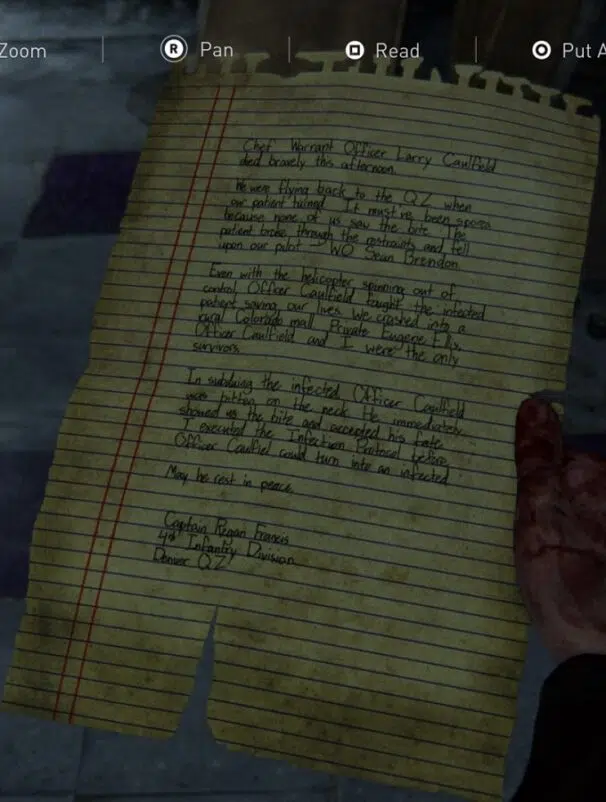 Zoom R Pan Read Put A
Chief Warrant Officer Larry Caulfield
died bravely this afternoon.
We were flying back to the QZ when
our patient turned. It must've been spores
because none of us saw the bite. The
patient broke through the restraints and fell
upon our pilot - WO Sean Brendon.
Even with the helicopter spinning out of
control, Officer Caulfield fought the infected
patient, saving our lives. We crashed into a
rural Colorado mall. Private Eugene Ellis,
Officer Caulfield and I were the only
survivors.
In subduing the infected, Officer Caulfield
was bitten on the neck. He immediately
showed us the bite and accepted his fate.
I executed the Infection Protocol before
Officer Caulfield could turn into an infected.
May he rest in peace,
Captain Regan Francis
4th Infantry Division
Denver QZ